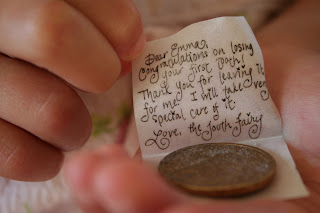 Dear Emma,
Congratulations on losing
your first tooth!
Thank you for leaving it
for me. I will take very
special care of it.
Love, the Tooth Fairy